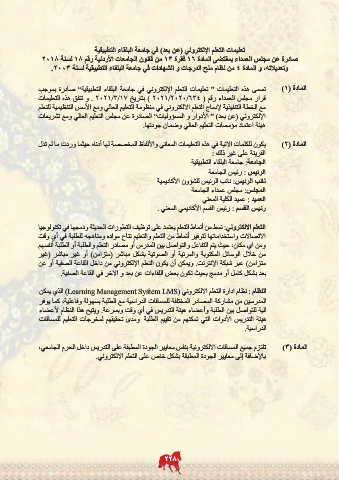 تعليمات التعلم الإلكتروني (عن بعد) في جامعة البلقاء التطبيقية
صادرة عن مجلس العمداء بمقتضى المادة ١٦ فقرة ١٣ من قانون الجامعات الأردنية رقم ١٨ لسنة ٢٠١٨
وتعديلاته، و المادة ٤ من نظام منح الدرجات و الشهادات في جامعة البلقاء التطبيقية لسنة ٢٠٠٣.
المادة (١) تسمى هذه التعليمات " تعليمات التعلم الإلكتروني في جامعة البلقاء التطبيقية" صادرة بموجب
قرار مجلس العمداء رقم (٢٠٢١/٢٠٢٠/٦٣٤) بتاريخ ٢٠٢١/٣/١٧ . و تتفق هذه التعليمات
مع الخطة التنفيذية لإدماج التعلم الإلكتروني في منظومة التعليم العالي ومع الأسس التنظيمية للتعلم
الإلكتروني (عن بعد) " الأدوار و المسؤوليات" الصادرة عن مجلس التعليم العالي ومع تشريعات
هيئة اعتماد مؤسسات التعليم العالي وضمان جودتها.
المادة (٢) يكون للكلمات الآتية في هذه التعليمات المعاني والألفاظ المخصصة لها أدناه حيثما وردت ما لم تدل
القرينة على غير ذلك :
الجامعة: جامعة البلقاء التطبيقية
الرئيس : رئيس الجامعة
نائب الرئيس: نائب الرئيس للشؤون الأكاديمية
المجلس: مجلس عمداء الجامعة
العميد : عميد الكلية المعني
رئيس القسم : رئيس القسم الأكاديمي المعني .
التعلم الإلكتروني: نمط من أنماط التعلم يعتمد على توظيف التطورات الحديثة ودمجها في تكنولوجيا
الاتصالات واستخداماتها لتوفير أنماط من التعلم والتعليم تتاح مواده ومناهجه للطلبة في أي وقت
ومن أي مكان، حيث يتم التفاعل والتواصل بين المدرس أو مصادر التعلم والطلبة أو الطلبة أنفسهم
من خلال الوسائل المكتوبة والمرئية أو الصوتية بشكل مباشر (متزامن) أو غير مباشر (غير
متزامن) عبر شبكة الإنترنت. ويمكن أن يكون التعلم الإلكتروني من داخل القاعة الصفية أو عن
بعد بشكل كامل أو مدمج بحيث تكون بعض اللقاءات عن بعد و الآخر في القاعة الصفية.
النظام : نظام إدارة التعلم الإلكتروني (Learning Management System LMS) الذي يمكن
المدرسين من مشاركة المصادر المختلفة للمساقات الدراسية مع الطلبة بسهولة وفاعلية، كما يوفر
آلية للتواصل بين الطلبة وأعضاء هيئة التدريس في أي وقت وبسرعة. ويتيح هذا النظام لأعضاء
هيئة التدريس الأدوات التي تمكنهم من تقييم الطلبة ومدى تحقيقهم لمخرجات التعليم للمساقات
الدراسية.
المادة (٣) تلتزم جميع المساقات الالكترونية بنفس معايير الجودة المطبقة على التدريس داخل الحرم الجامعي،
بالإضافة إلى معايير الجودة المطبقة بشكل خاص على التعلم الالكتروني.
٢٢٨